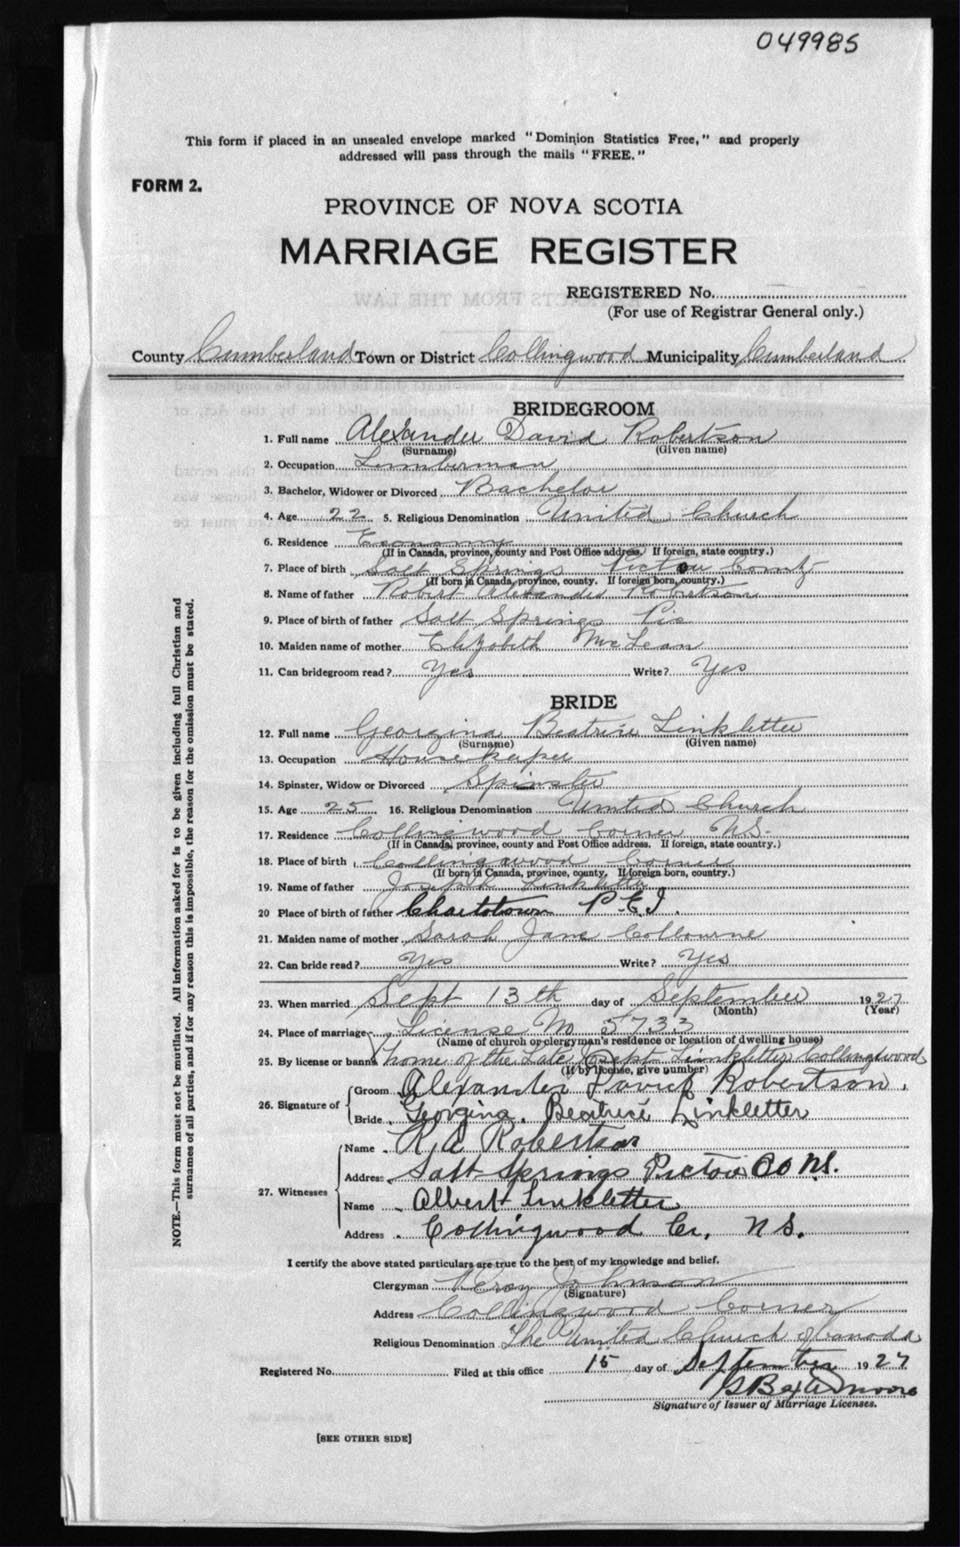 049985
This form if placed in an unsealed envelope marked "Dominion Statistics Free," and properly
addressed will pass through the mails "FREE."
FORM 2.
PROVINCE OF NOVA SCOTIA
MARRIAGE REGISTER
REGISTERED No.
(For use of Registrar General only.)
County Cumberland Town or District Collingwood Municipality Cumberland
BRIDEGROOM
1. Full name Alexander David Robertson
(Surname) (Given name)
2. Occupation Lumberman
3. Bachelor, Widower or Divorced Bachelor
4. Age 22 5. Religious Denomination United Church
6. Residence Economy
(If in Canada, province, county and Post Office address. If foreign, state country.)
7. Place of birth Salt Springs Pictou County
(If born in Canada, province, county. If foreign born, country.)
8. Name of father Robert Alexander Robertson
9. Place of birth of father Salt Springs Pic
10. Maiden name of mother Elizabeth McLean
11. Can bridegroom read? Yes Write? Yes
BRIDE
12. Full name Georgina Beatrice Linkletter
(Surname) (Given name)
13. Occupation Housekeeper
14. Spinster, Widow or Divorced Spinster
15. Age 25 16. Religious Denomination United Church
17. Residence Collingwood Corner N.S.
(If in Canada, province, county and Post Office address. If foreign, state country.)
18. Place of birth Collingwood Corner
(If born in Canada, province, county. If foreign born, country.)
19. Name of father Joseph Linkletter
20 Place of birth of father Charlotown P.E.I.
21. Maiden name of mother Sarah Jane Colbourne
22. Can bride read? Yes Write? Yes
23. When married Sept 13th day of September 1927
(Month) (Year)
24. Place of marriage License No 5733
(Name of church or clergyman's residence or location of dwelling house)
25. By license or banns home of the late Linkletter Collingwood
(If by license, give number)
26. Signature of Groom Alexander David Robertson.
Bride Georgina. Beatrice Linkletter
27. Witnesses Name R. A Robertson
Address Salt Springs Pictou Co N.S.
Name Albert Linkletter
Address Collingwood Cr. N.S.
I certify the above stated particulars are true to the best of my knowledge and belief.
Clergyman Johnson
(Signature)
Address Collingwood Corner
Religious Denomination The United Church of Canada
Registered No. Filed at this office 15 day of September 1927
Moore
Signature of Issuer of Marriage Licenses.
[SEE OTHER SIDE]
NOTE.—This form must not be mutilated. All information asked for is to be given including full Christian and
surnames of all parties, and if for any reason this is impossible, the reason for the omission must be stated.